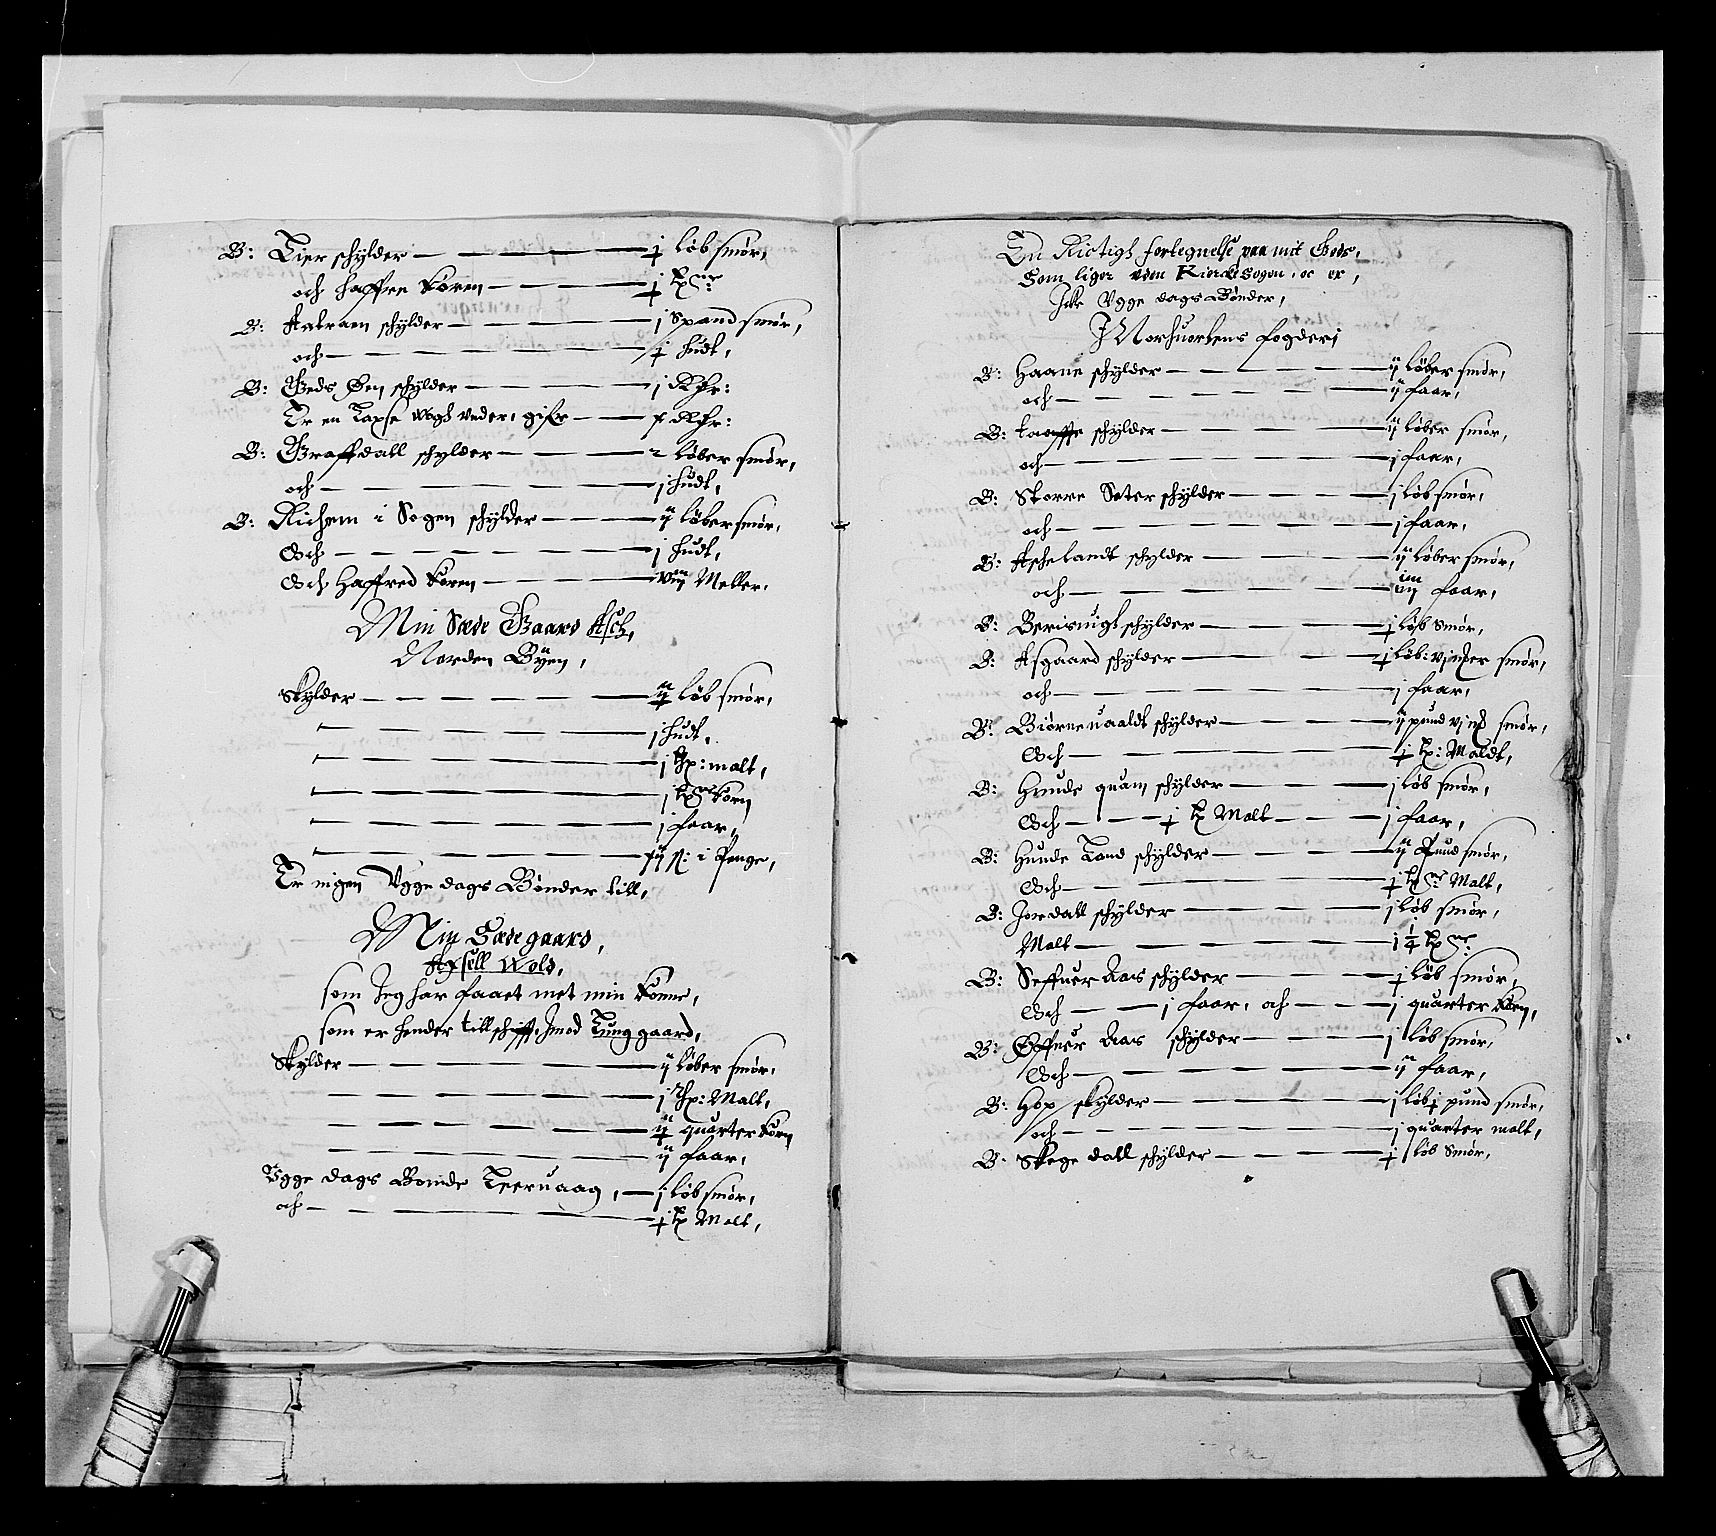 B: Tier schylder — — — ½ løb smør,
och haffre Korn — — — ½ tꝭ
B: Aakraen schylder — — — j Spand smør,
och — — — — ½ hudt,
B: Geds Øen schylder — — — j Rdr:
Er en Laxse vogh under, gifr — — dlr:
B: Graffdall schylder — — — 2 løber smør,
och — — — — j hudt,
B: Richem i Sogen schylder — — — ij løber smør,
Och — — — — j hudt,
Och Haffred Korn — — — viij Meller.
Min Sæde Gaard Asch,
Norden Byen,
Skylder — — — løb smør,
— — — — j hudt.
— — — — j tꝭ: malt,
— — — — j tꝭ Korn
— — — — j faar,
— — — — i Penge,
Er ingen Ugge dags Bønder till,
Min Sædegaard,
Axsell Wold,
som Jeg har faaet met min Konne,
som er hender tillschifft, imod Tunggaard,
Skylder — — — ij løber smør,
— — — — j tꝭ: Malt,
— — — — quarter Korn
— — — — ij faar,
Ugge dags Bonde Teeruaag, — j løb smør,
och — — — — ½ tꝭ Malt,
En Rictigh fortegnelse paa mit Gods,
Som liger uden Kircke Sogen, oc er,
Icke Ugge dags Bønder,
I Norhuortens fogderi
B: Haane schylder — — — ij løber smør,
och — — — — ij faar,
B: taaffte schylder — — — ij løber smør,
och — — — — j faar,
B: Storre Seter schylder — — — j løb smør,
och — — — — j faar,
B: Aschelandt schylder — — — ij løber smør,
och — — — — faar,
B: Berisuigt schylder — — — ½ løb smør,
B: Asgaard schylder — — — ½ løb: vj mker smør,
och — — — — j faar,
B: Biørneuaaldt schylder — — — ij pund vj mk smør,
Och — — — — ½ tꝭ: Maldt,
B: Hunde quam schylder — — — j løb smør,
Och — — ½ tꝭ Malt — — — j faar,
B: Hunde Land schylder — — — ij Pund smør,
Och — — — — ½ tꝭ Malt,
B: Jordall schylder — — — j løb smør,
Malt — — — — 1 ¼ tꝭ
B: Seffuer Aas schylder — — — ½ løb smør,
Och — — j faar, och — — — j quarter Korn,
B: Øffuer Aas schylder — — — j løb smør,
Och — — — — ij faar,
B: Hop skylder — — — j løb ½ pund smør,
och — — — — j quarter malt,
B: Skoge dall schylder — — — ½ løb Smør,